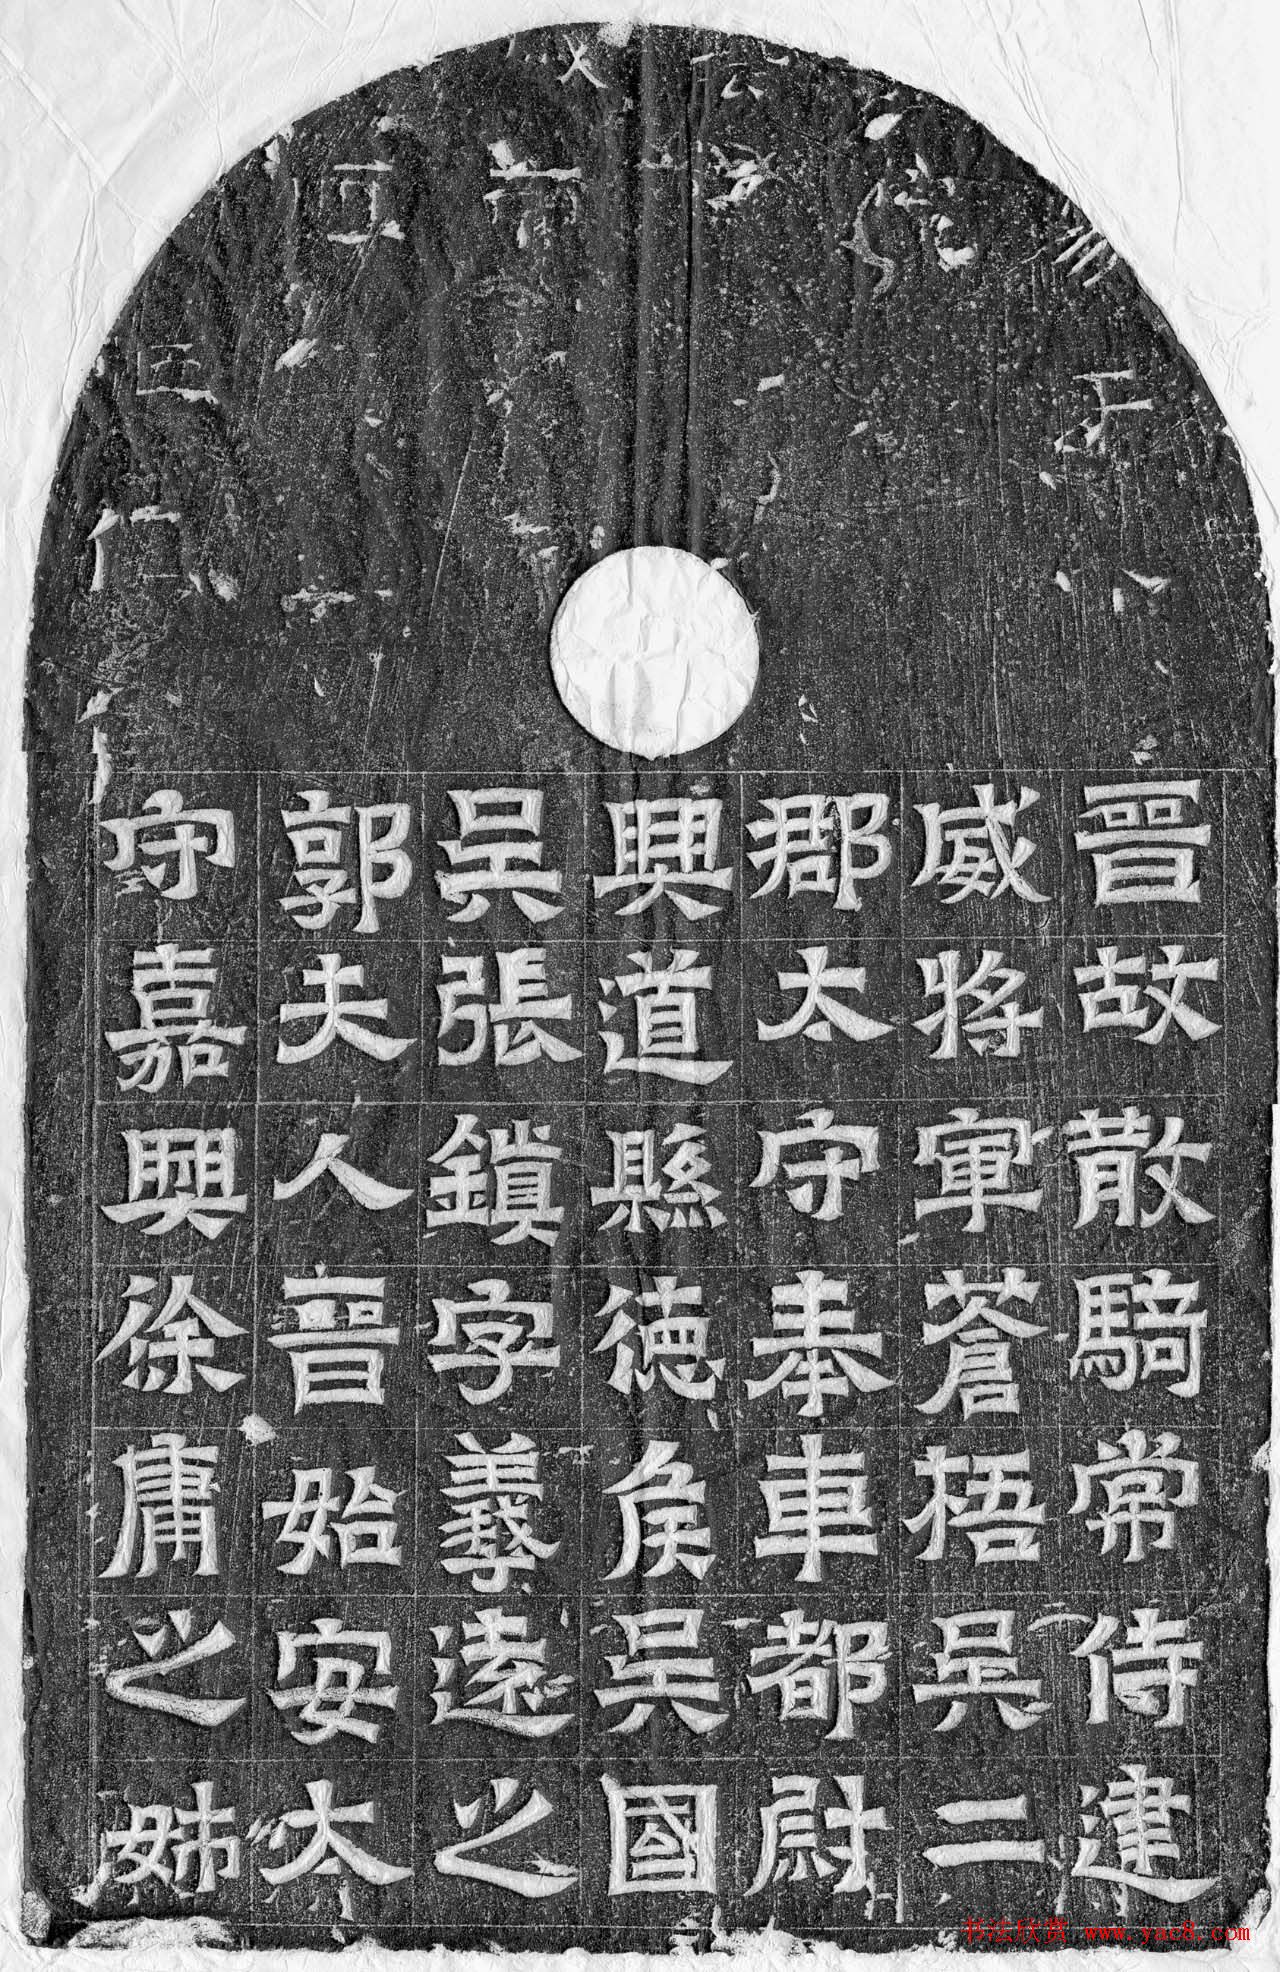 晉故散騎常侍建
威將軍蒼梧吳二
郡太守奉車都尉
興道縣德侯吳國
吳張鎮字義遠之
郭夫人晉始安太
守嘉興徐庸之姊
书法欣赏 www.yac8.com